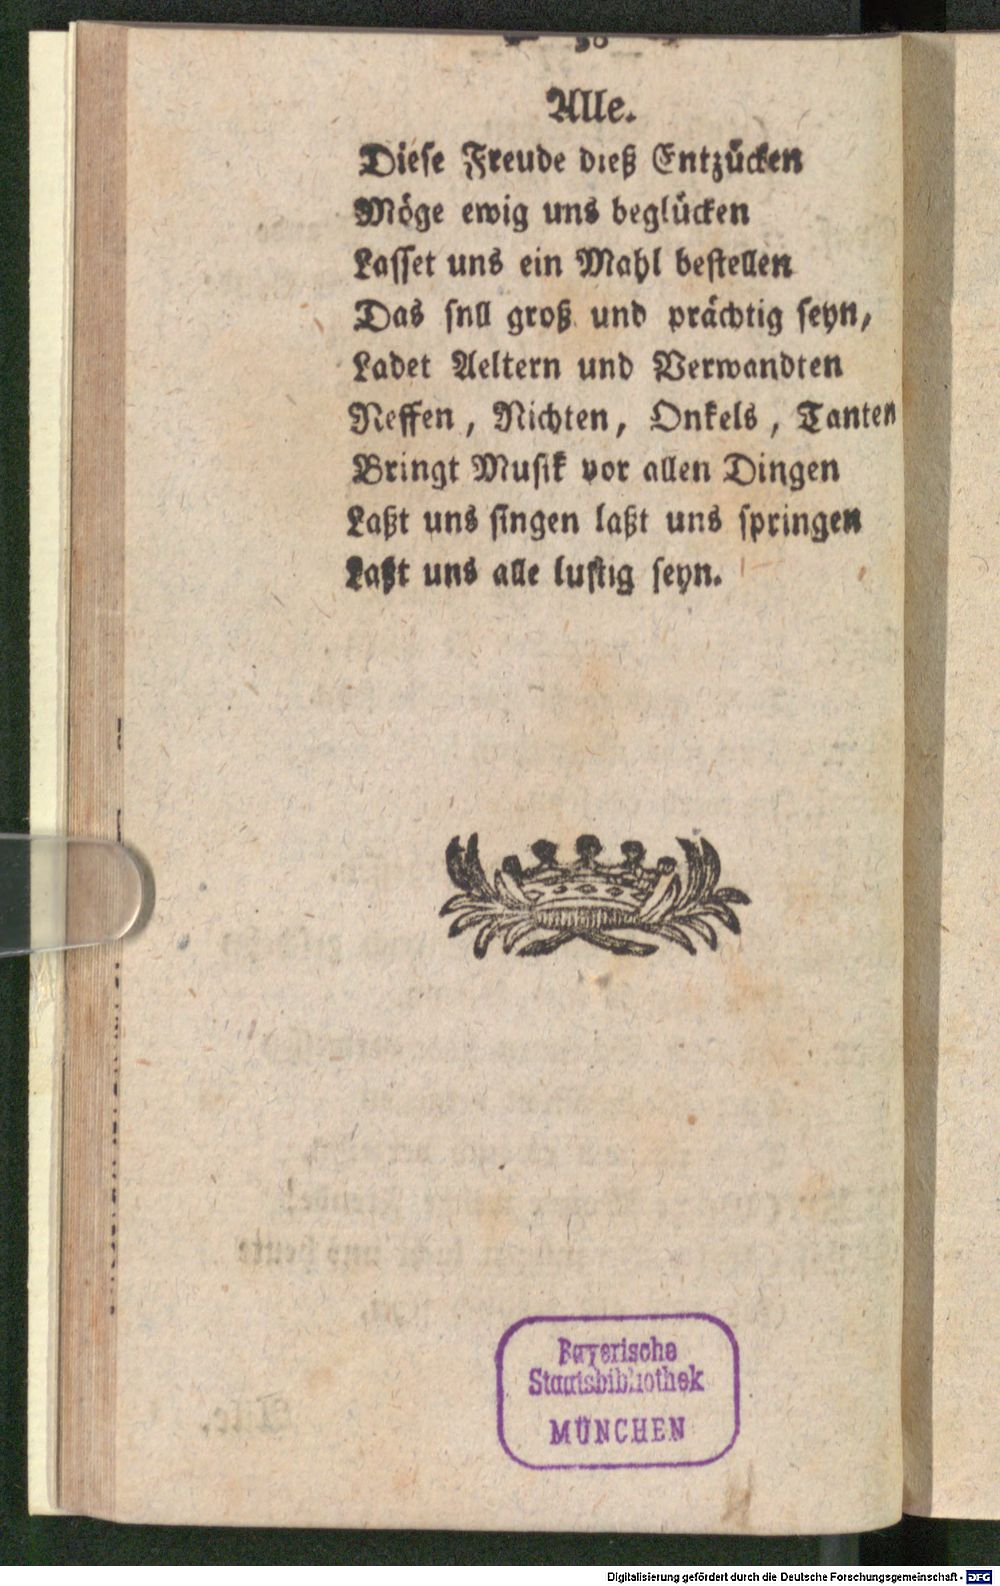 Alle.
Diese Freude dieß Entzücken
Möge ewig uns beglücken
Lasset uns ein Mahl bestellen
Das snll groß und prächtig seyn,
Ladet Aeltern und Verwandten
Neffen, Nichten, Onkels, Tanten
Bringt Musik vor allen Dingen
Laßt uns singen laßt uns springen
Laßt uns alle lustig seyn.
Bayerische
Staatsbibliothek
MÜNCHEN
Digitalisierung gefördert durch die Deutsche Forschungsgemeinschaft - DFG